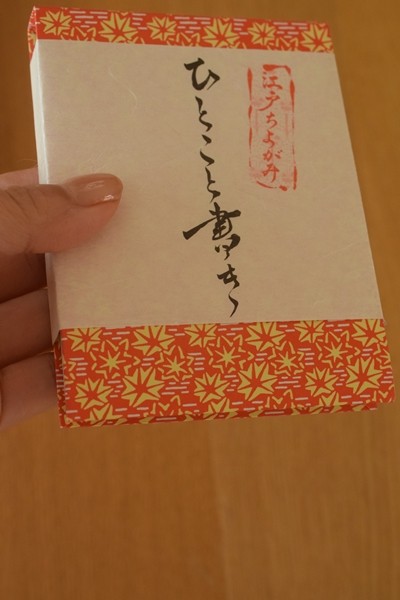 江戸ちよがみ
ひとこと書き